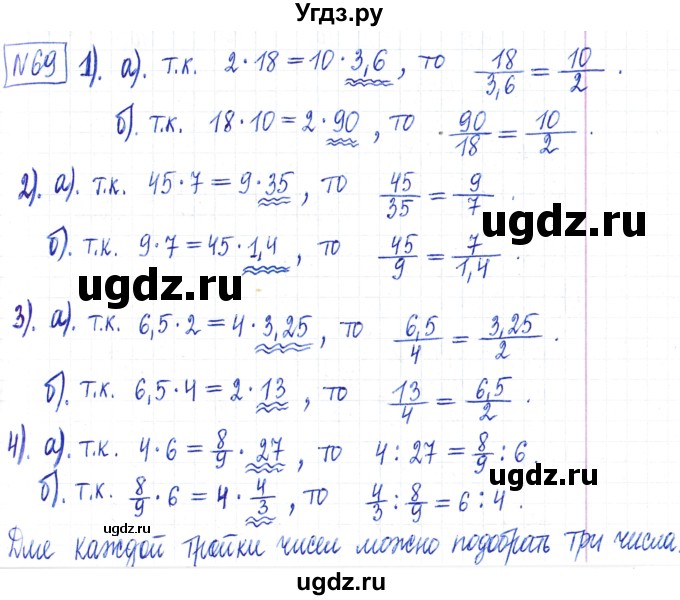 Угдз.ру
№69 1). а). т.к. 2·18=10·3,6, то 18/3,6 = 10/2.
б). т.к. 18·10=2·90, то 90/18 = 10/2.
2). а). т.к. 45·7=9·35, то 45/35 = 9/7.
ugdz.ru
б). т.к. 9·7=45·1,4, то 45/9 = 7/1,4.
ugdz.ru
3). а). т.к. 6,5·2=4·3,25, то 6,5/4 = 3,25/2.
б). т.к. 6,5·4=2·13, то 13/4 = 6,5/2.
4). а). т.к. 4·6=8/9·27, то 4:27=8/9:6.
б). т.к. 8/9·6=4·4/3, то 4/3:8/9=6:4.
ugdz.ru ugdz.ru
Для каждой тройки чисел можно подобрать три числа.
ugdz.ru